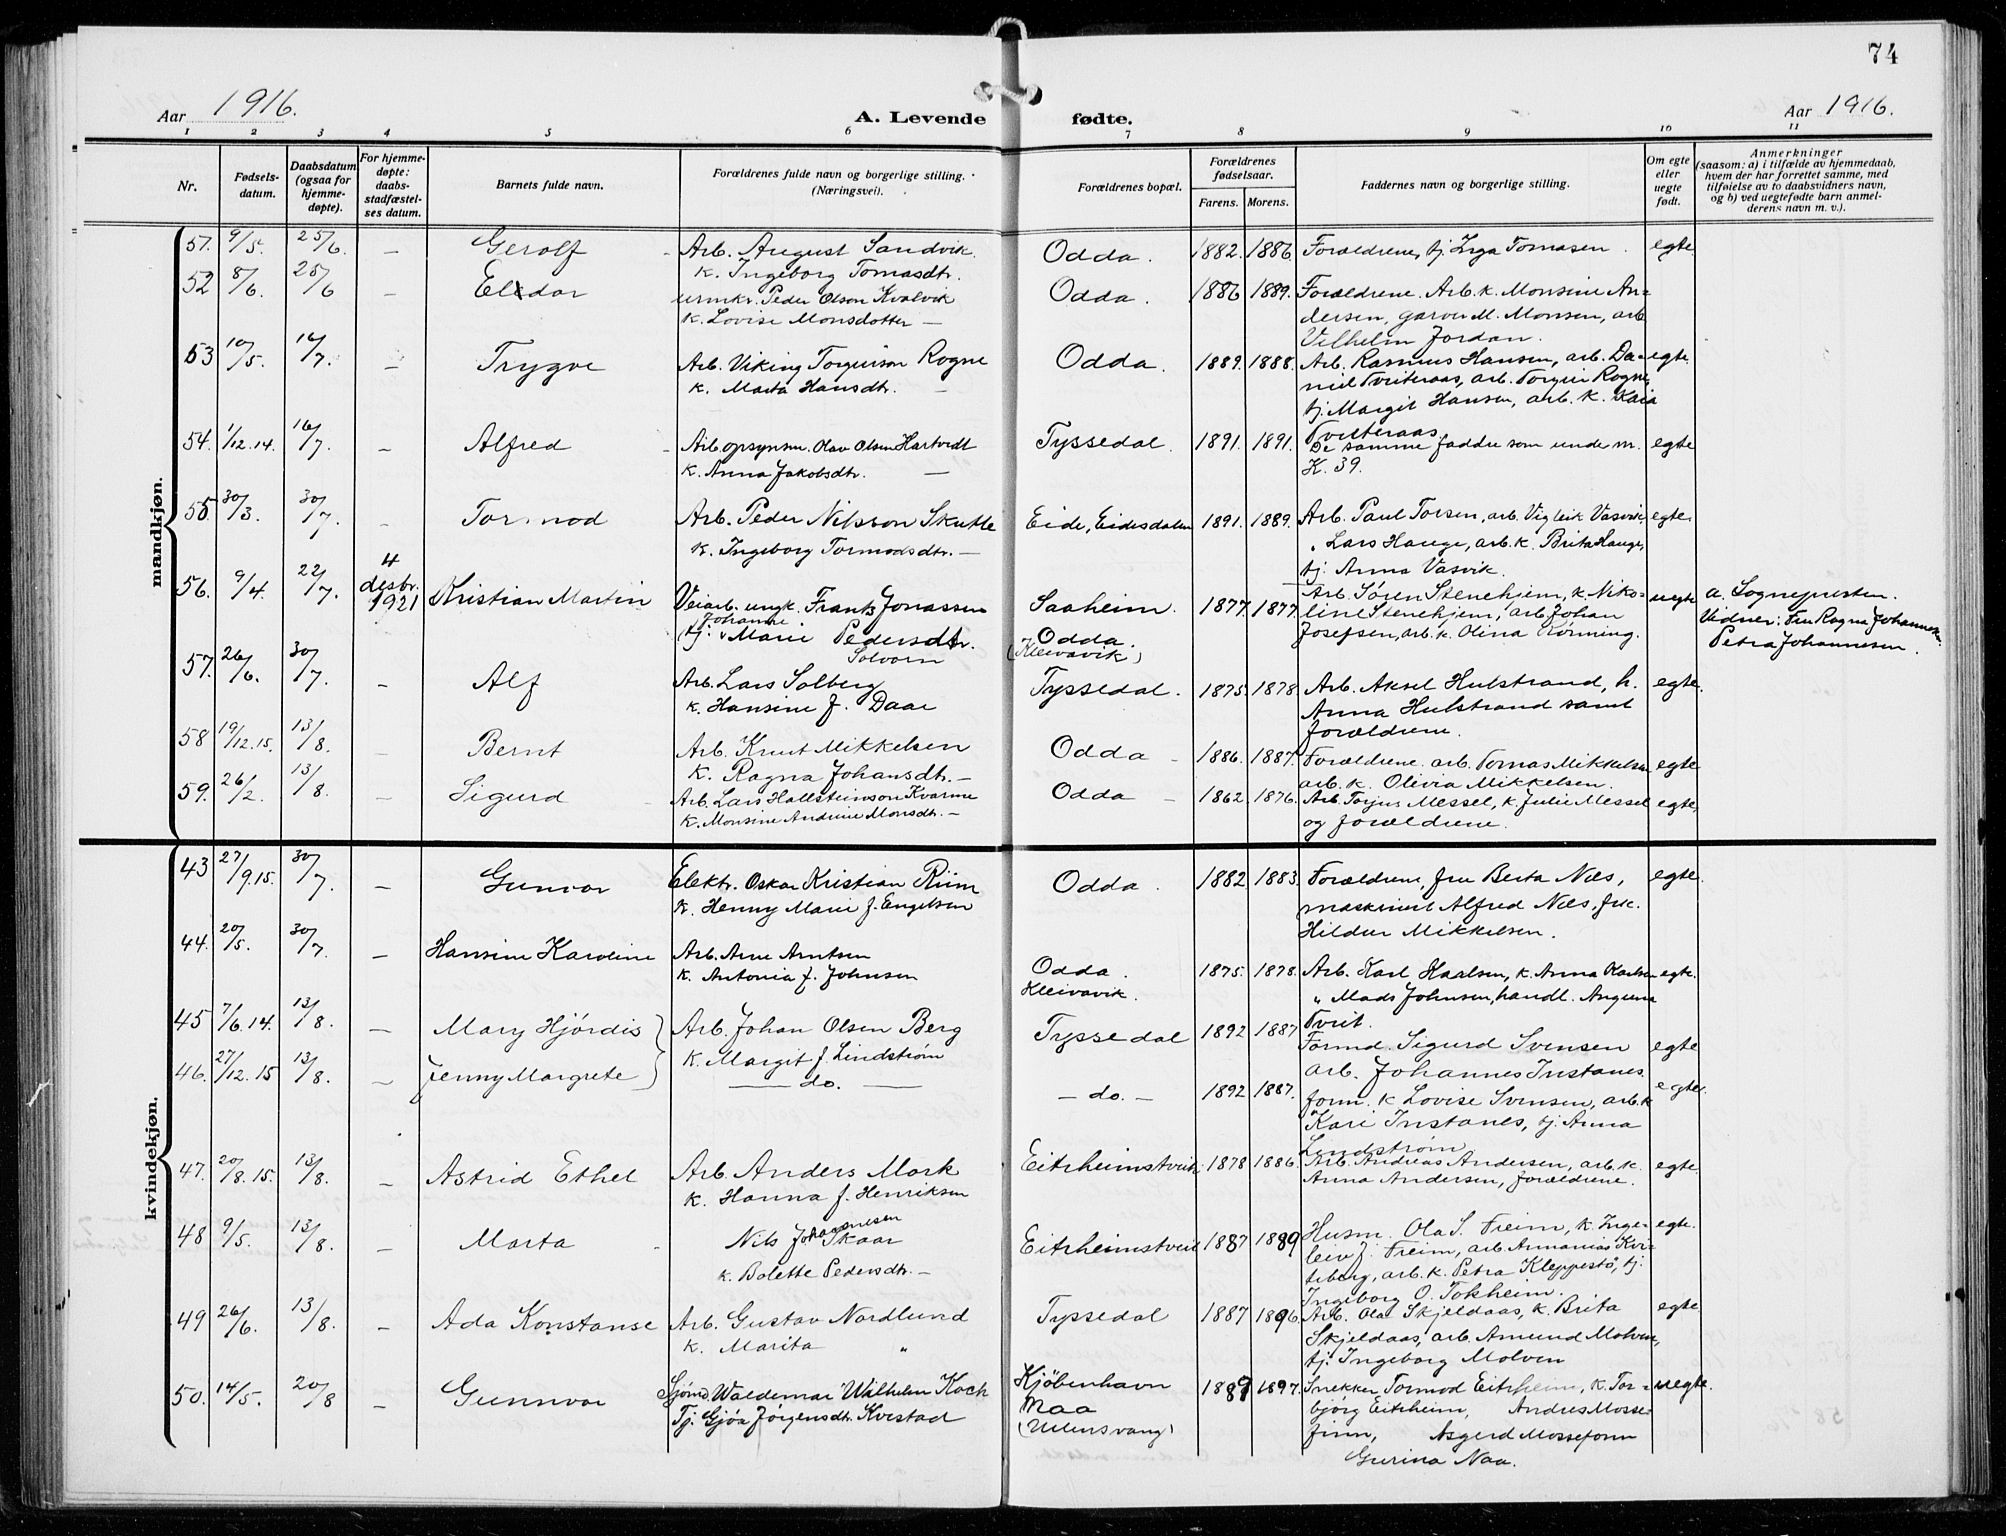 74
Aar 1916.
A. Levende fødte.
Aar 1916.
1 2 3 4 5 6 7 8 9 10 11
Nr.
Fødsels-
datum.
Daabsdatum
(ogsaa for
hjemme-
døpte).
For hjemme-
døpte:
daabs-
stadfæstel-
ses datum.
Barnets fulde navn.
Forældrenes fulde navn og borgerlige stilling.
(Næringsvei).
Forældrenes bopæl.
Forældrenes
fødselsaar.
Farens. Morens.
Faddernes navn og borgerlige stilling.
Om egte
eller
uegte
født.
Anmerkninger
(saasom: a) i tilfælde av hjemmedaab,
hvem der har forrettet samme, med
tilføielse av to daabsvidners navn,
og b) ved uegtefødte barn anmel-
derens navn m. v.).
mandkjøn.
51. 9/5. 25/6. — Gerolf Arb. August Sandvik Odda. 1882. 1886. Forældrene, tj. Inga Tomasen. egte
k. Ingeborg Tomasdtr.
52 8/6. 25/6 — Eldar urmkr. Peder Olson Kvalvik Odda. 1886 1889. Forældrene. Arb. k. Monsine An-
k. Lovise Monsdotter — dersen, garver M. Monsen, arb.
Vilhelm Jordan.
53 10/5. 16/7. — Trygve Arb. Viking Torgeirson Rogne Odda. 1889. 1888. Arb. Rasmus Hansen, arb. Da- egte.
k. Marta Hansdtr. — niel Tveiteraas, arb. Torgeir Rogne,
tj. Margit Hansen, arb. k. Kaia
Tveiteraas.
54. 1/12.14. 16/7. — Alfred Arb.opsynsm. Olav Olsen Hartvedt Tyssedal. 1891. 1891. De samme faddre som under m. egte
k. Anna Jakobsdtr. — K. 39.
55. 30/3. 30/7. - Tormod Arb. Peder Nilsson Skutle Eide, Eidesdalen 1891. 1889. Arb. Paul Torsen, arb. Vigleik Vasvik, egte.
k. Ingeborg Tormodsdtr. — " Lars Hauge, arb. k. Brita Hauge,
tj. Anna Vasvik.
56. 9/4. 22/7. 4 desbr. 1921 Kristian Martin Veiarb. ungk. Frantz Jonassen Saaheim. 1877. 1877 Arb. Søren Stenehjem, k. Niko- uegte a. Sognepresten.
tj. Johanne Marie Pedersdtr. Odda. line Stenehjem, arb. Johan Vidner: Fru Ragna Johannesen
Solvorn (Kleivavik) Josefsen, arb. k. Olina Rønning. Petra Johannesen.
57. 26/6. 30/7. - Alf Arb. Lars Solberg Tyssedal. 1875. 1878. Arb. Aksel Hulstrand, h. egte.
k. Hansine f. Daae Anna Hulstrand samt
forældrene.
58 19/12.15. 13/8. — Bernt Arb. Knut Mikkelsen Odda 1886. 1887. Forældrene. arb. Tomas Mikkelsen, egte
k. Ragna Johansdtr. — arb. k. Olivia Mikkelsen.
59. 26/2. 13/8. — Sigurd Arb. Lars Hallsteinson Kvarme Odda — 1862. 1876. Arb. Torjus Messel, k. Julie Messel egte,
k. Monsine Andrine Monsdtr. — og forældrene.
kvindekjøn.
43 27/9.15. 30/7. — Gunvor Elektr. Oskar Kristian Riim Odda. 1882 1883. Forældrene, fru Berta Næs, egte.
k. Henny Marie f. Engelsen maskinist Alfred Næs, frk.
Hildur Mikkelsen.
44. 20/5. 30/7. — Hansine Karoline Arb. Arne Arntsen Odda. 1875. 1878. Arb. Karl Haalsen, k. Anna Karlsen egte.
k. Antonia f. Johnsen Kleivavik. " Mads Johnsen, handl. Anguna
Tveit.
45 7/6.14. 13/8. — Mary Hjørdis Arb. Johan Olsen Berg Tyssedal 1892 1887 Formd. Sigurd Svensen egte
k. Margit f. Lindstrøm arb. Johannes Instanes
46. 27/12.15 13/8. — Jenny Margrete — do. — — do. — 1892 1887. form. k Lovise Svensen, arb. k egte.
Kari Instanes, tj. Anna
Lindstrøm
47. 20/8.15. 13/8. — Astrid Ethel Arb. Anders Mork Eitrheimstveit 1878 1886. Arb. Andreas Andersen, arb. k. egte.
k. Hanna f. Henriksen Anna Andersen, forældrene.
48 9/5. 13/8. — Marta Nils Johannesen Skaar Eitrheimstveit 1887 1889 Husm. Ola S. Freim, k. Inge- egte.
k. Bolette Pedersdtr. — leiv J. Freim, arb. Armanias Kvi-
teberg, arb. k. Petra Kleppestø, tj.
Ingeborg O. Tokheim.
49 26/6. 13/8. — Ada Konstanse Arb. Gustav Nordlund Tyssedal 1887 1896. Arb. Ola Skjeldaas, k. Brita egte
k. Marita " Skjeldaas, arb. Amund Molven,
tj. Ingeborg Molven
50. 14/5. 20/8 — Gunnvor Sjømd. Waldemar Wilhelm Koch Kjøbenhavn 1889 1897. Snekker Tormod Eitrheim, k. Tor- uegte.
Tj. Gjøa Jørgensdtr. Kvestad Naa bjørg Eitrheim, Andres Mosse-
(Ullensvang) finn, Asgerd Mossefonn
Gurina Naa.